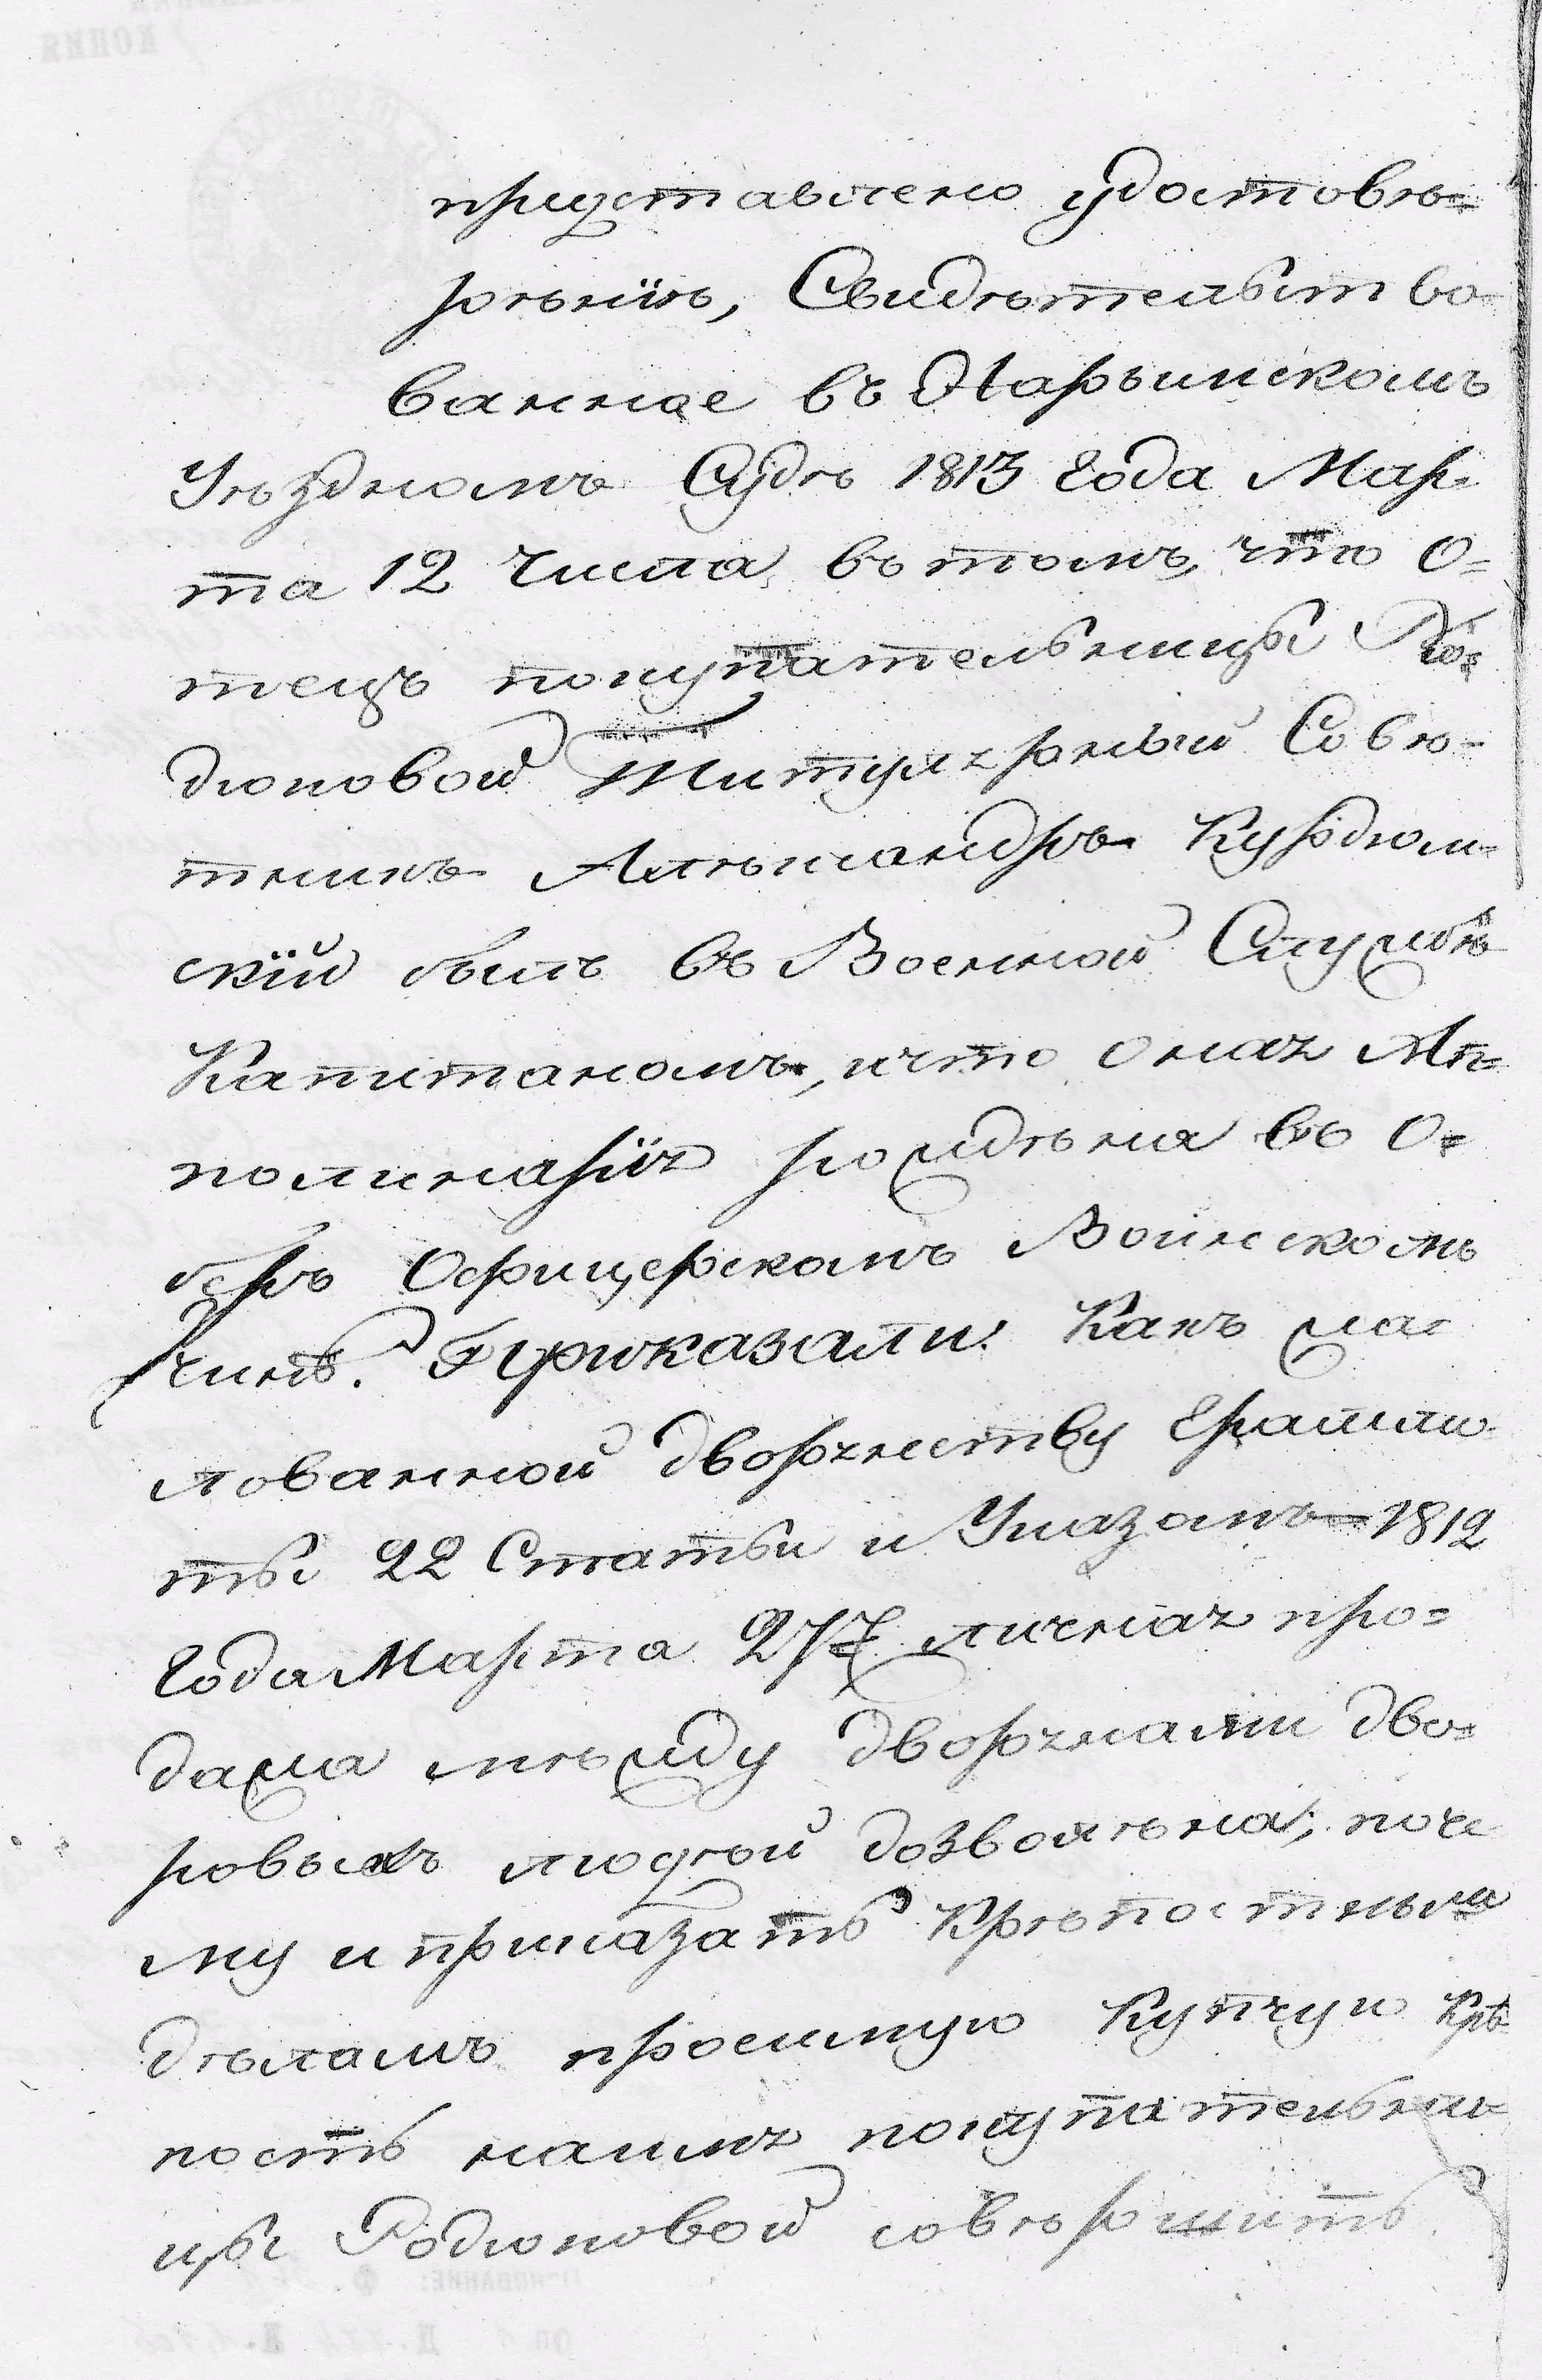 представлено удостовѣ=
рѣніѣ, Свидѣтельство-
ванное въ Нарымскомъ
Уѣздномъ Судѣ 1813 года Мар-
та 12 числа въ томъ, что о=
тецъ покупательницы Ро=
дионовой Титулярный Совѣ-
тникъ Алѣксандръ Курдюм-
скій былъ въ Военной Службѣ
Капитаномъ, и что оная Ап=
полинарія рождѣна въ О=
беръ Офицерскомъ Воинскомъ
чинѣ. Приказали: Какъ жа=
лованной дворянству Грамм-
ты 22 Статьи и Указамъ 1812
года Марта 27 личная про=
дажа мѣжду дворянами дво=
ровыхъ людѣй дозволѣна; поче
му и приказать Крѣпостныхъ
дѣламъ просимую Купчую Крѣ
пость на имя покупательни-
цы Родионовой совѣршить